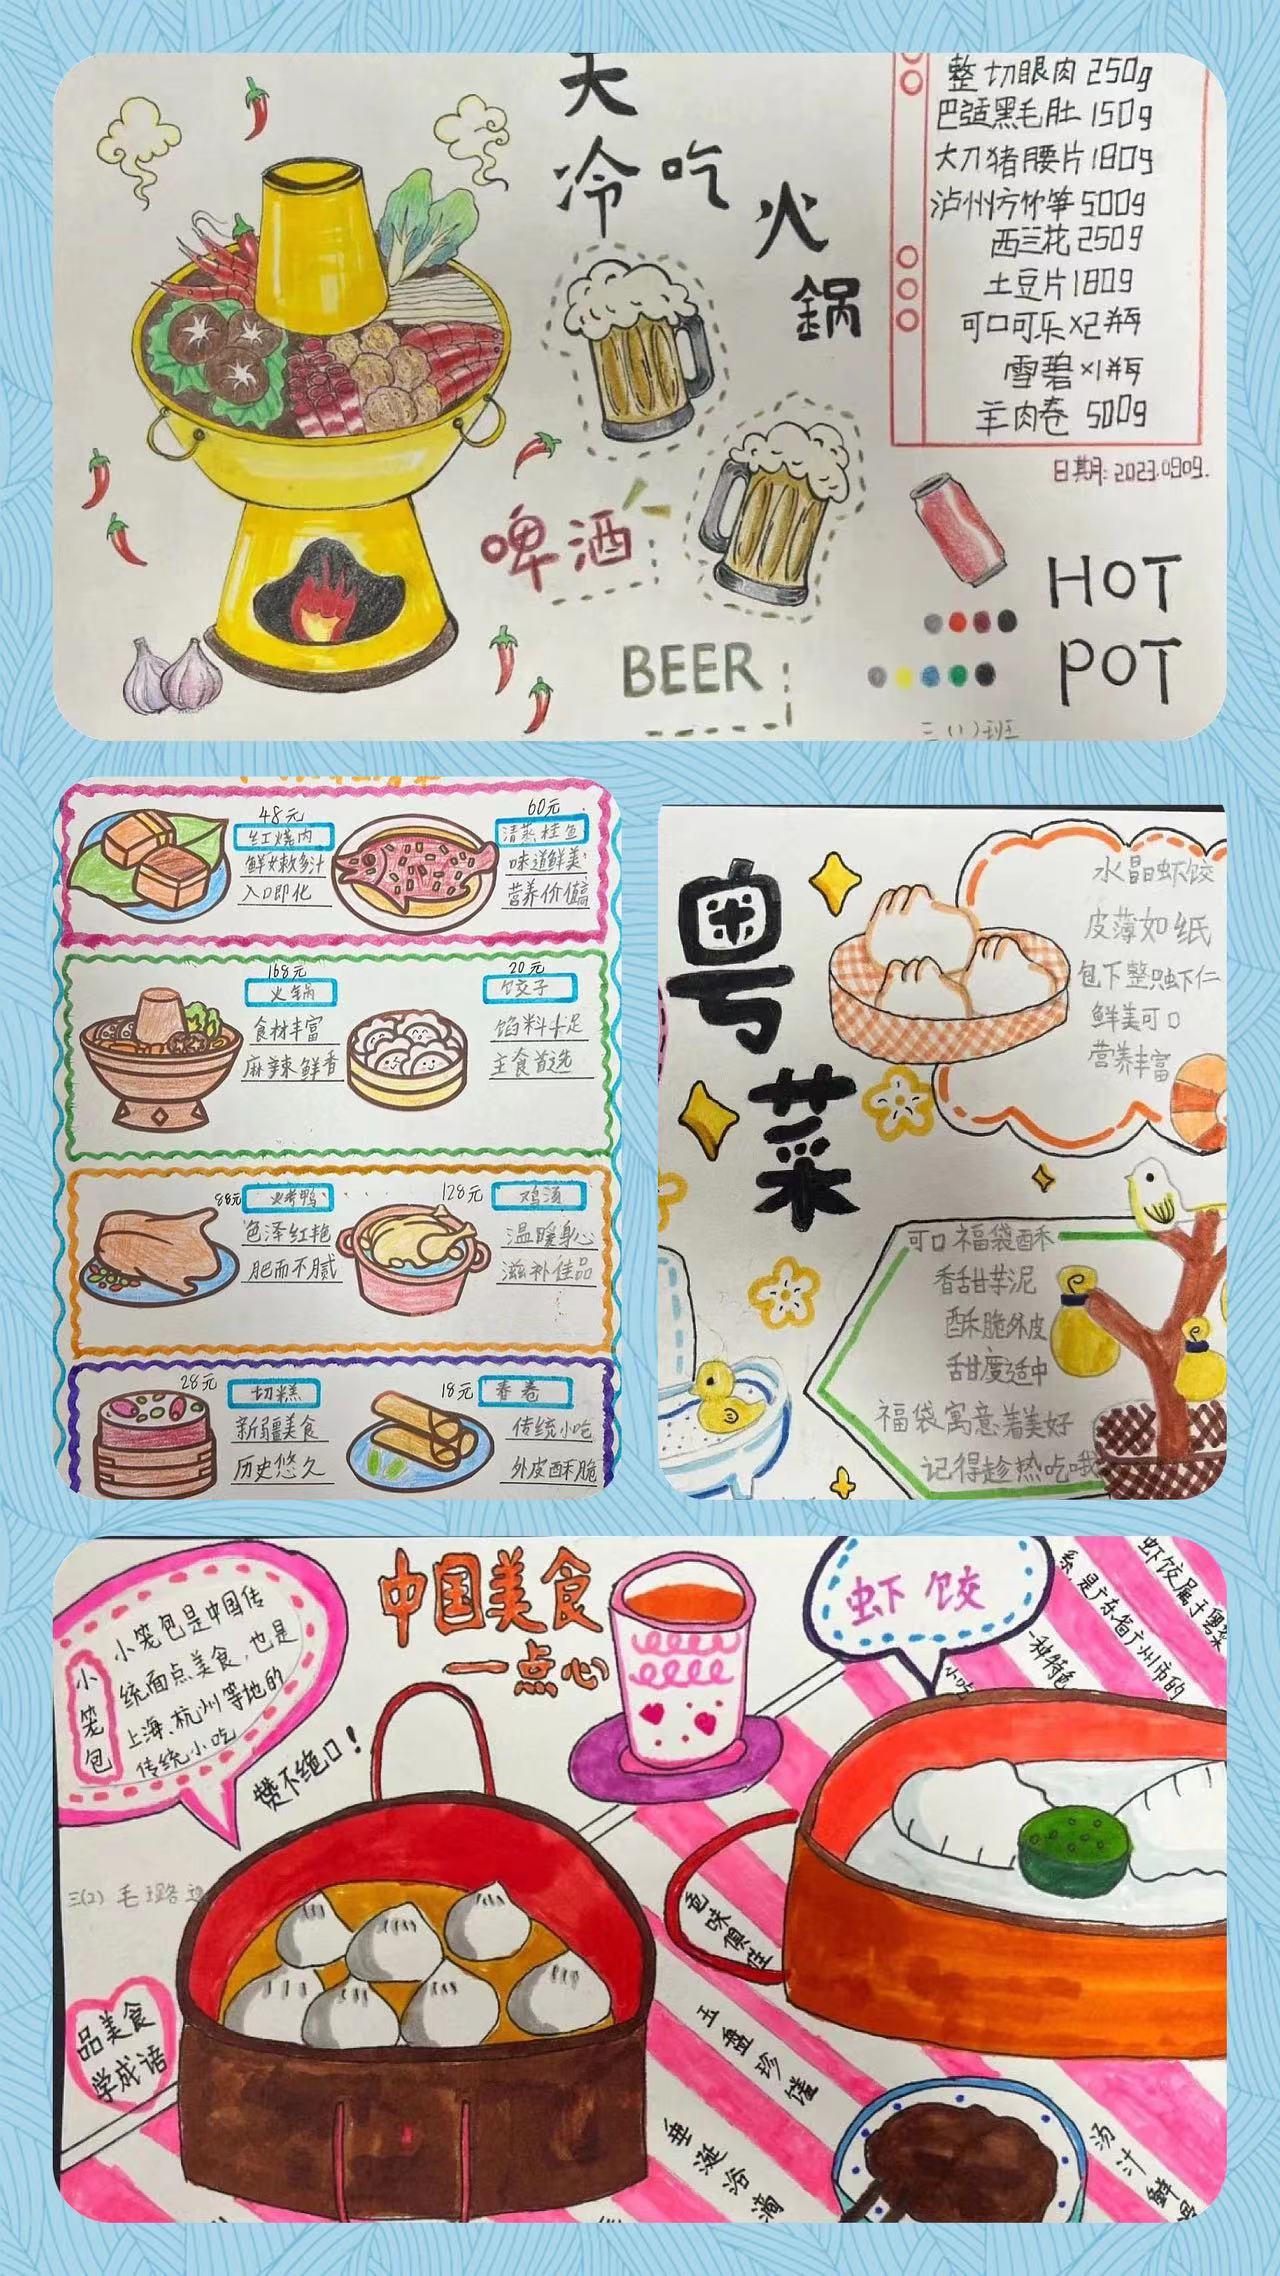 天
冷吃
火
鍋
整切眼肉 250g
巴适黑毛肚 150g
大刀猪腰片 180g
泸州方竹笋 500g
西兰花 250g
土豆片 180g
可口可乐 x2瓶
雪碧 x1瓶
羊肉卷 500g
日期: 2023.0909.
啤酒
BEER
HOT
POT
三(1)班
48元
红烧肉
鲜嫩多汁
入口即化
60元
清蒸桂鱼
味道鲜美
营养价值高
168元
火锅
食材丰富
麻辣鲜香
20元
饺子
馅料十足
主食首选
88元
火烤鸭
色泽红艳
肥而不腻
128元
鸡汤
温暖身心
滋补佳品
28元
切糕
新疆美食
历史悠久
18元
春卷
传统小吃
外皮酥脆
粤
菜
水晶虾饺
皮薄如纸
包下整只虾仁
鲜美可口
营养丰富
可口福袋酥
香甜芋泥
酥脆外皮
甜度适中
福袋寓意着美好
记得趁热吃哦
中国美食
一点心
小笼包
小笼包是中国传
统面点美食,也是
上海、杭州等地的
传统小吃
赞不绝口!
三(2) 毛璐
品美食
学成语
虾饺
虾饺属于粤菜
系,是广东省广州市的
一种特色
小吃
色味俱佳
玉盘珍馐
垂涎浴滴
汤汁鲜